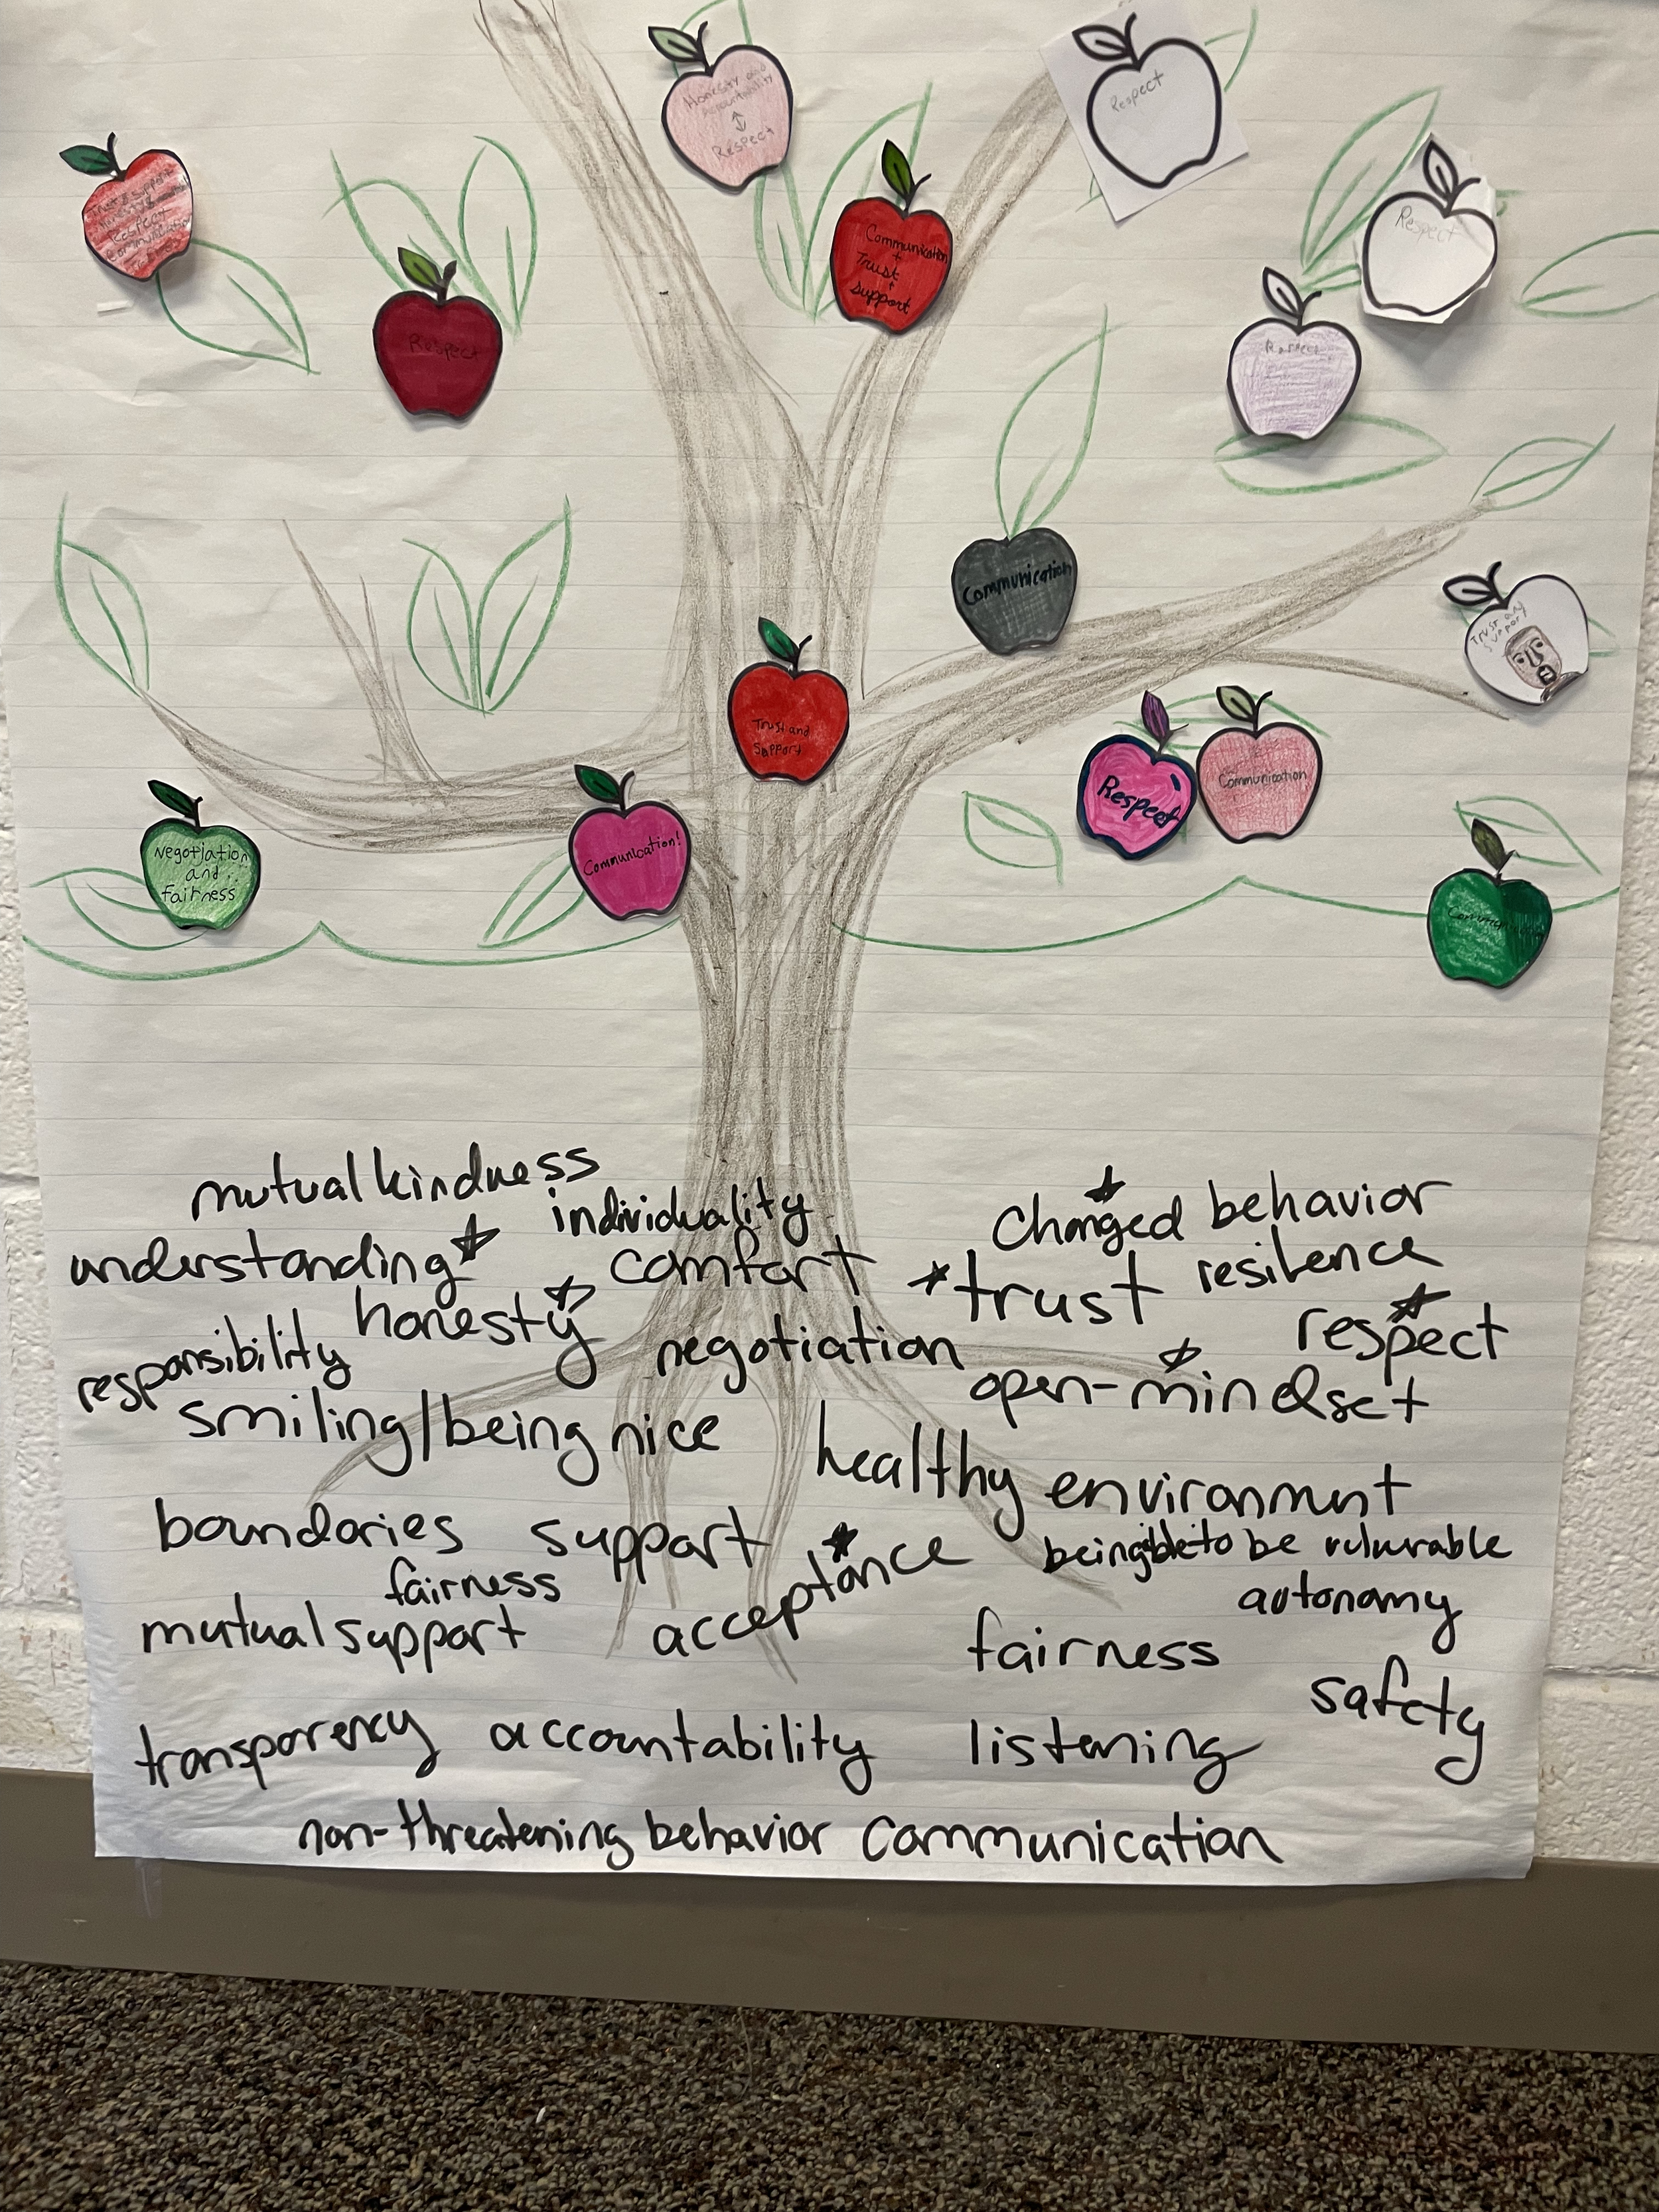 Honesty and
Accountability
Respect
Respect
Trust & Support
Honesty &
Respect
Communication
Respect
Communication
+
Trust
+
Support
Respect
Respect
Communication
Trust and
Support
Trust and
Support
Respect
Communication
Communication!
Negotiation
and
fairness
mutual kindness
individuality
understanding
comfort
honesty
responsibility
negotiation
smiling/being nice
changed behavior
trust
resilence
respect
open-mindset
healthy environment
boundaries
support
fairness
mutual support
acceptance
being able to be vulnurable
autonomy
fairness
safety
transparency
accountability
listening
non-threatening behavior
communication